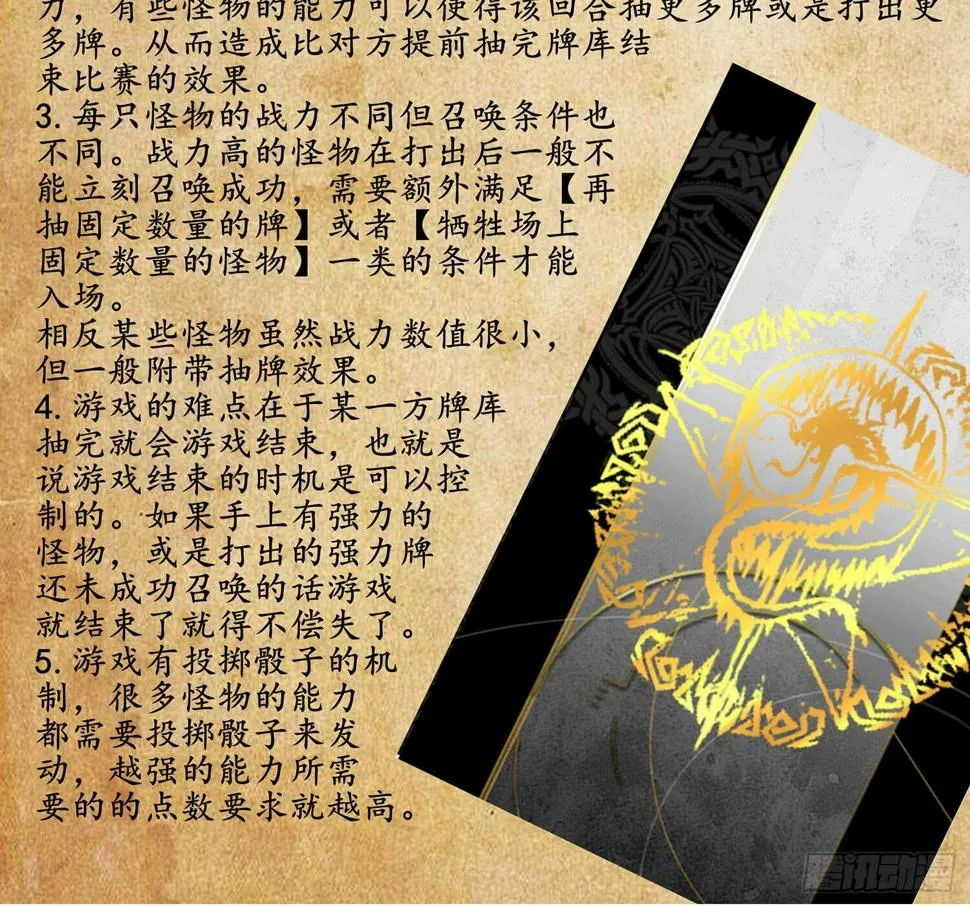 力，有些怪物的能力可以使得该回合抽更多牌或是打出更
多牌。从而造成比对方提前抽完牌库结
束比赛的效果。
3. 每只怪物的战力不同但召唤条件也
不同。战力高的怪物在打出后一般不
能立刻召唤成功，需要额外满足【再
抽固定数量的牌】或者【牺牲场上
固定数量的怪物】一类的条件才能
入场。
相反某些怪物虽然战力数值很小，
但一般附带抽牌效果。
4. 游戏的难点在于某一方牌库
抽完就会游戏结束，也就是
说游戏结束的时机是可以控
制的。如果手上有强力的
怪物，或是打出的强力牌
还未成功召唤的话游戏
就结束了就得不偿失了。
5. 游戏有投掷骰子的机
制，很多怪物的能力
都需要投掷骰子来发
动，越强的能力所需
要的的点数要求就越高。
腾讯动漫